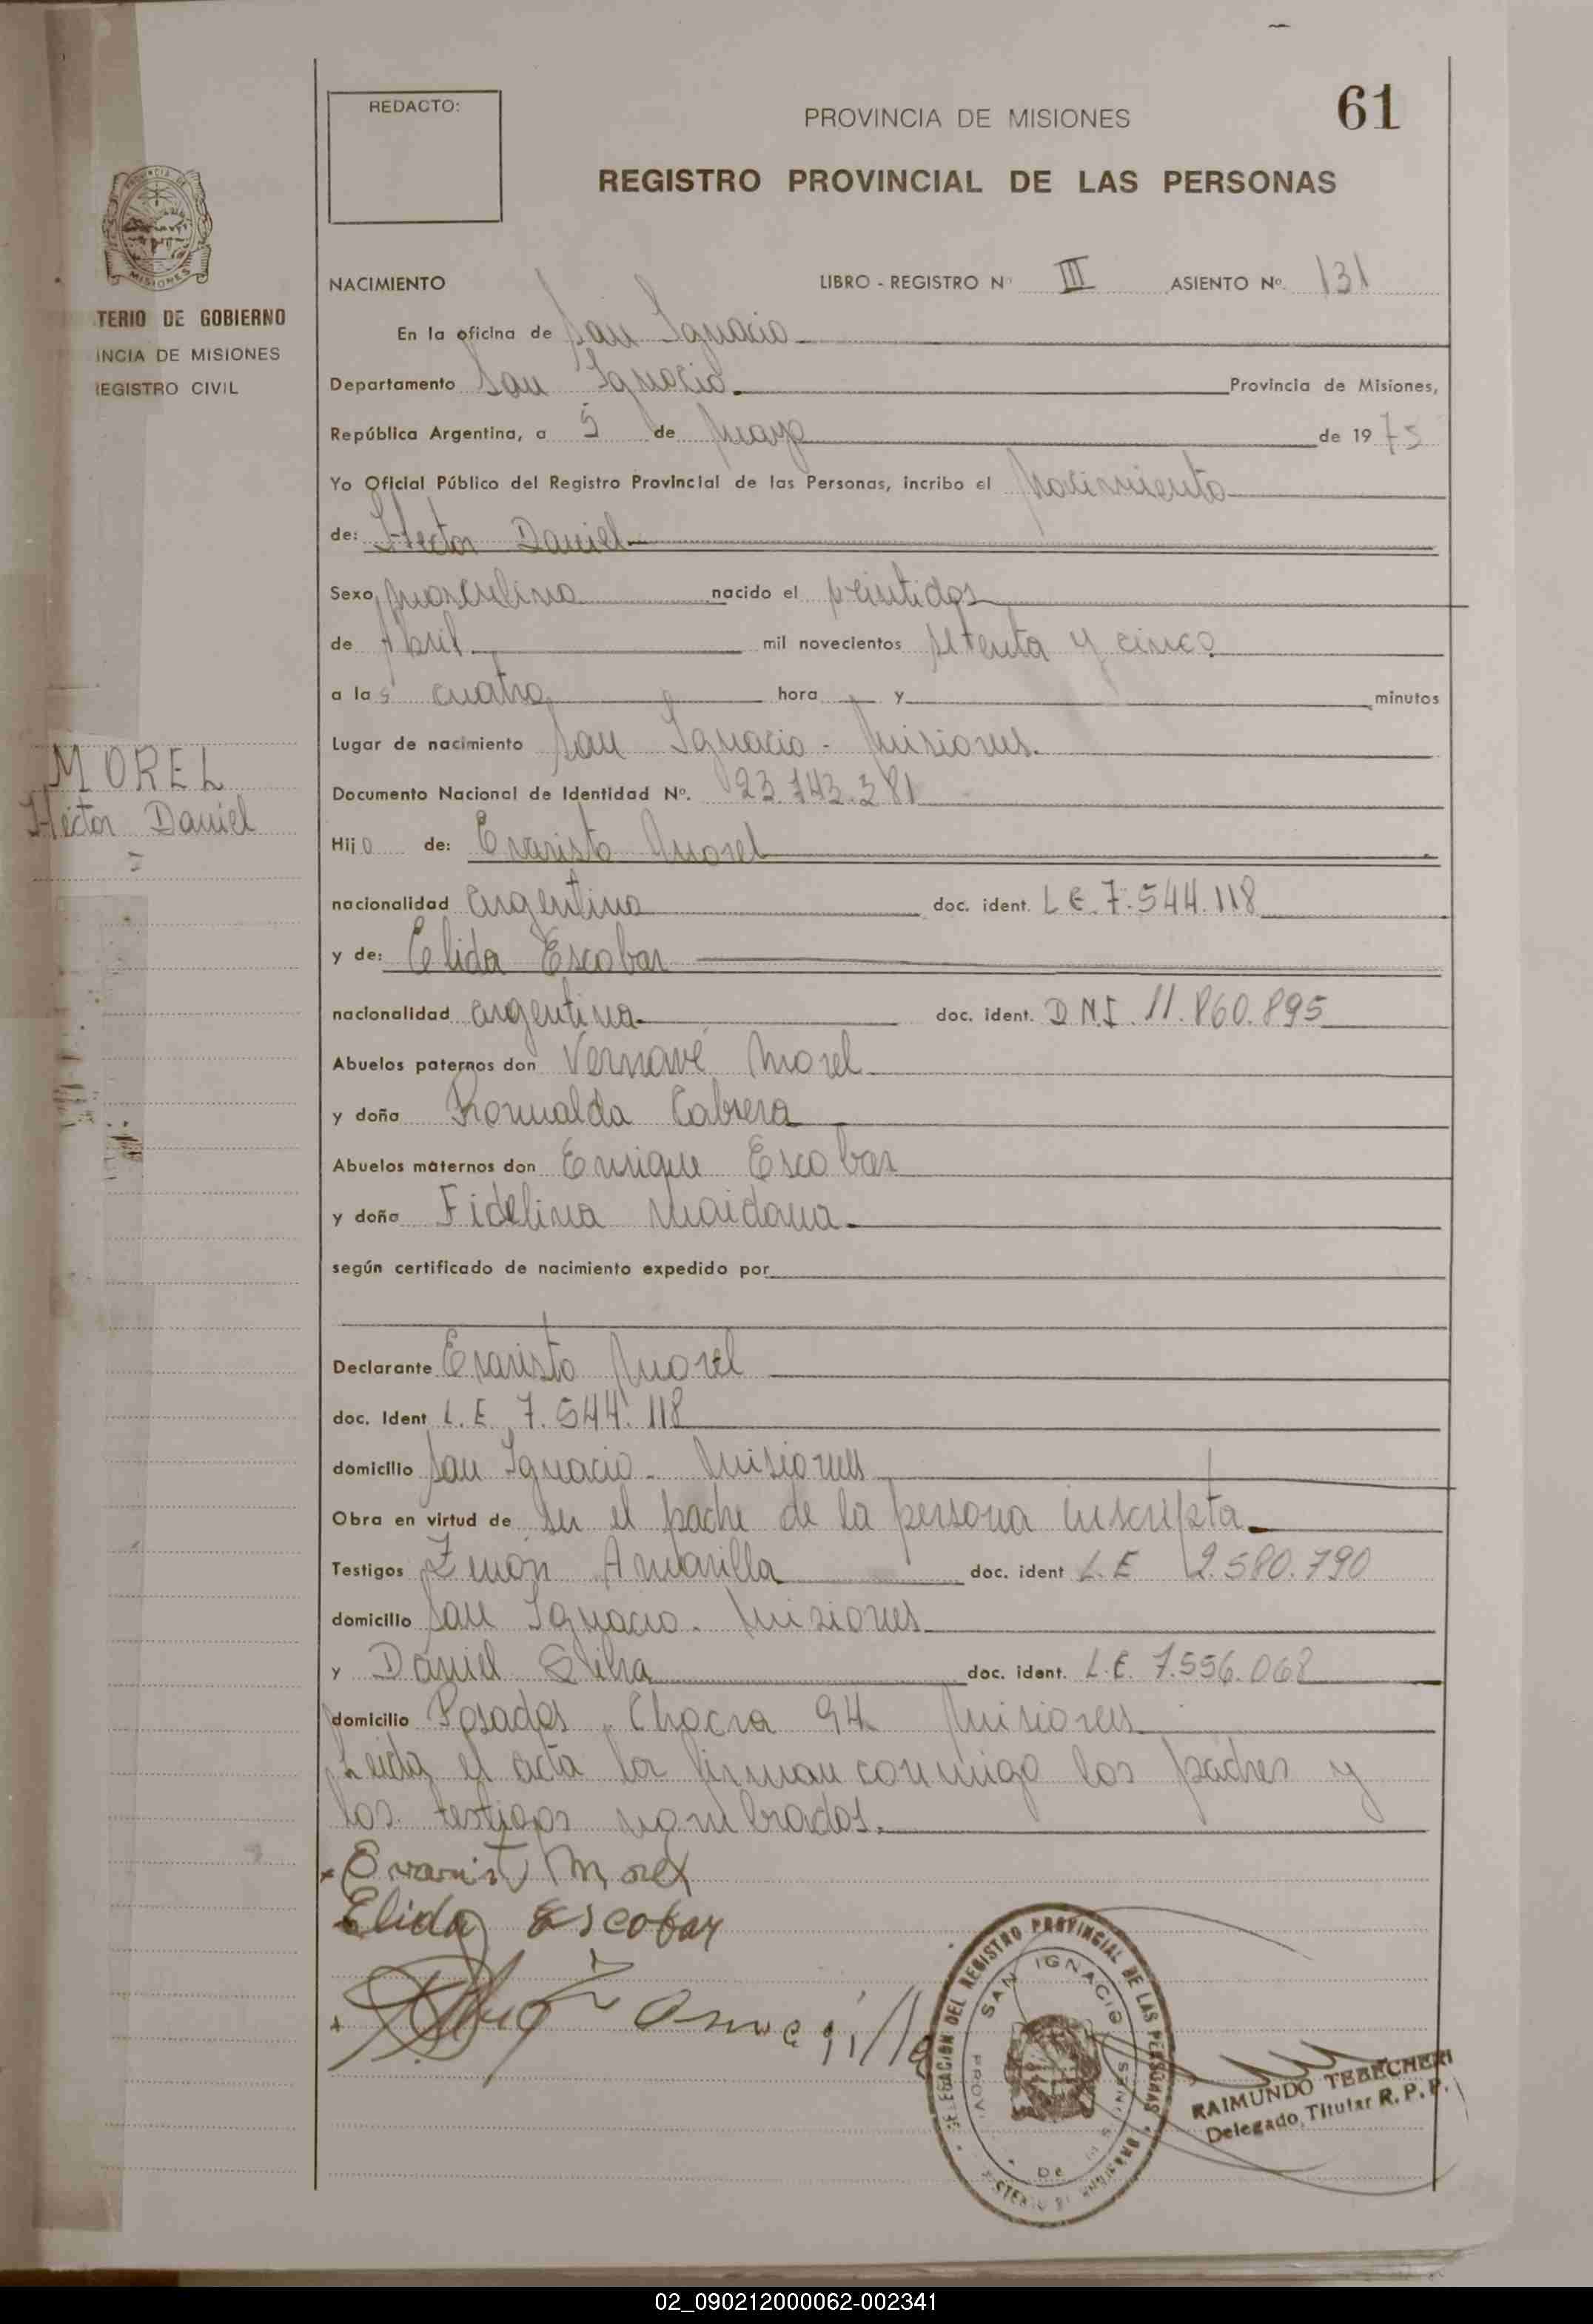 61
REDACTO:
PROVINCIA DE MISIONES
REGISTRO PROVINCIAL DE LAS PERSONAS
TERIO DE GOBIERNO
INCIA DE MISIONES
REGISTRO CIVIL
NACIMIENTO LIBRO - REGISTRO Nº III ASIENTO Nº 131
En la oficina de San Ignacio
Departamento San Ignacio. Provincia de Misiones,
República Argentina, a 5 de mayo de 1975
Yo Oficial Público del Registro Provincial de las Personas, incribo el nacimiento
de: Hector Daniel
Sexo masculino nacido el veintidos
de Abril mil novecientos setenta y cinco
a las cuatro hora y minutos
Lugar de nacimiento San Ignacio - Misiones.
MOREL
Héctor Daniel
Documento Nacional de Identidad Nº. 23.143.381
Hijo de: Evaristo Morel
nacionalidad argentina doc. ident. L E. 7.544.118
y de: Elida Escobar
nacionalidad argentina doc. ident. D N.I. 11.860.895
Abuelos paternos don Vernavé Morel
y doña Romualda Cabrera
Abuelos maternos don Enrique Escobar
y doña Fidelina Maidana
según certificado de nacimiento expedido por
Declarante Evaristo Morel
doc. Ident L. E. 7.544.118
domicilio San Ignacio - Misiones
Obra en virtud de ser el padre de la persona inscripta
Testigos Zenón Amarilla doc. ident L.E 2.580.790
domicilio San Ignacio - Misiones
y Daniel Silva doc. ident. L.E. 7.556.068
domicilio Posadas, Chacra 94 Misiones
Leida el acta la firman conmigo los padres y
los testigos nombrados.
Evaristo Morel
Elida Escobar
DELEGACION DEL REGISTRO PROVINCIAL DE LAS PERSONAS
SAN IGNACIO
PROV. DE
RAIMUNDO TEBECHERI
Delegado Titular R. P. P.
02_090212000062-002341